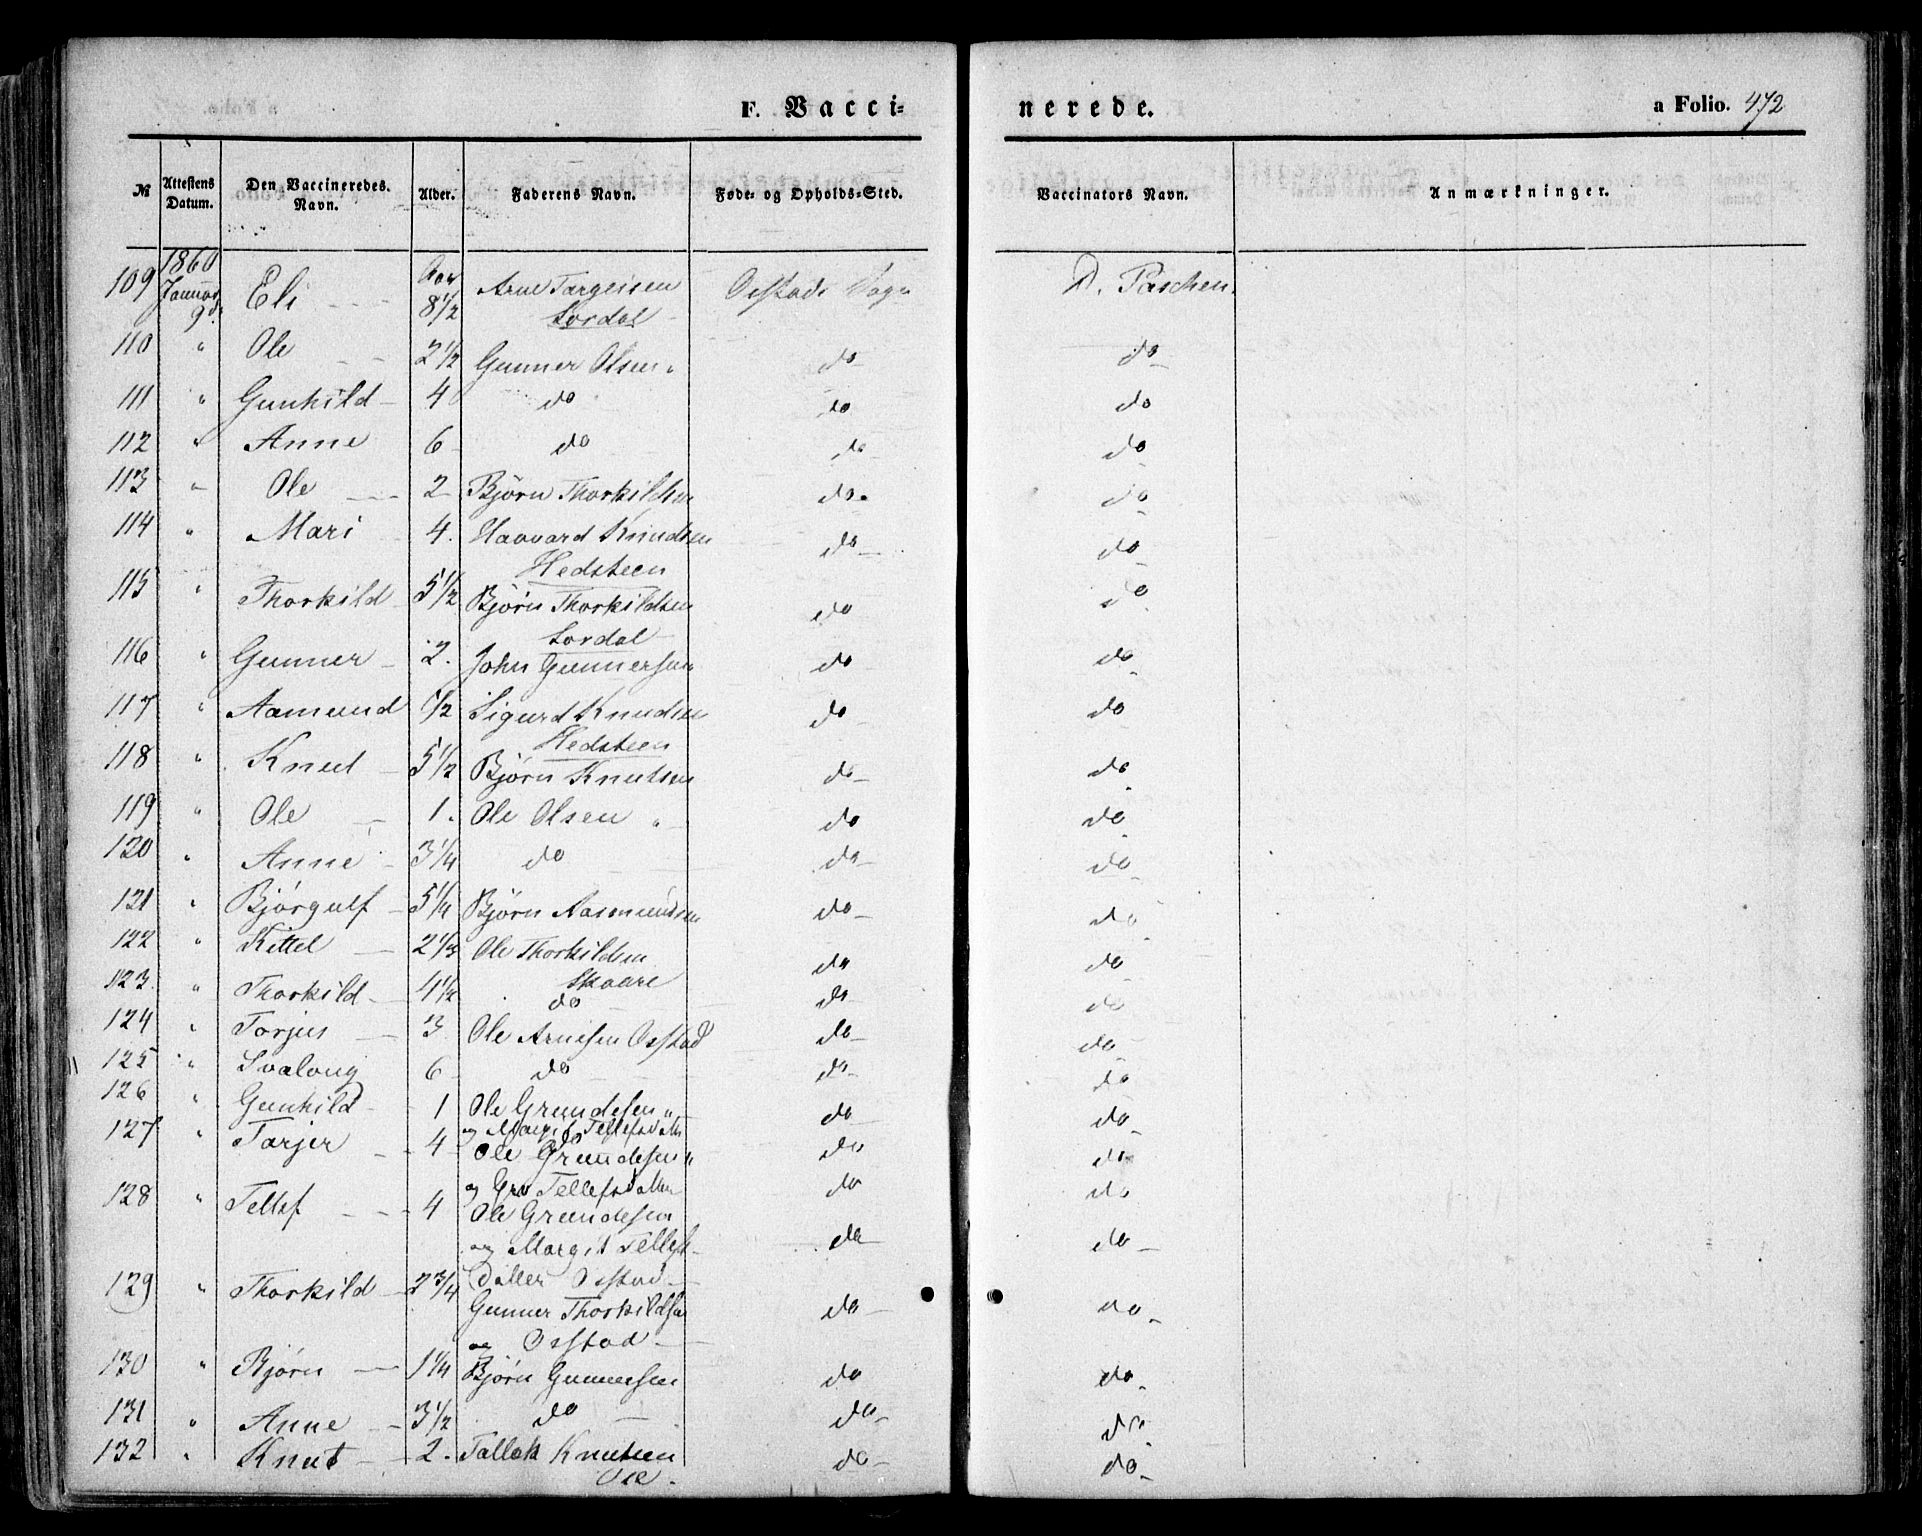 F. Vacci=
nerede.
a Folio. 472
№ Attestens Datum. Den Vaccineredes Navn. Alder. Faderens Navn. Føde- og Opholds-Sted. Vaccinators Navn. Anmærkninger.
1860
109 Januar 9d. Eli Aar 8 1/2 Arne Targeisen Lordal Osstads Sogn D. Paschen.
110 " Ole 2 1/2 Gunner Olsen " do do
111 " Gunhild 4 do do do
112 " Anne 6 do do do
113 " Ole 2 Bjørn Thorkildsen do do
114 " Mari 4. Haavard Knudsen Hedsteen do do
115 " Thorkild 5 1/2 Bjørn Thorkildsen Lordal do do
116 " Gunner 2. John Gunnersen do do
117 " Aamund 1/2 Sigurd Knudsen Hedsteen do do
118 " Knut 5 1/2 Bjørn Knutsen do do
119 " Ole 1. Ole Olsen " do do
120 " Anne 3 1/4 do do do
121 " Bjørgulf 5 1/4 Bjørn Aasmundsen do do
122 " Kittel 2 1/3 Ole Thorkildsen Skaare do do
123. " Thorkild 4 1/2 do do do
124 " Torjus 3 Ole Arnesen Osstad do do
125 " Svaloug 6 do do do
126 " Gunhild 1 Ole Grundesen " do do
og Margit Tellefsdatter
127 " Tarjer 4 Ole Grundesen " do do
og Gro Tellefsdatter do do
128 " Tellef 4 Ole Grundesen
og Margit Tellefs- do do
datter Osstad
129 " Thorkild 2 3/4 Gunner Thorkildsen do do
og Osstad
130 " Bjørn 1 1/4 Bjørn Gunnersen do do
131 " Anne 3 1/2 do do do
132 " Knut 2. Tallak Knutsen do do